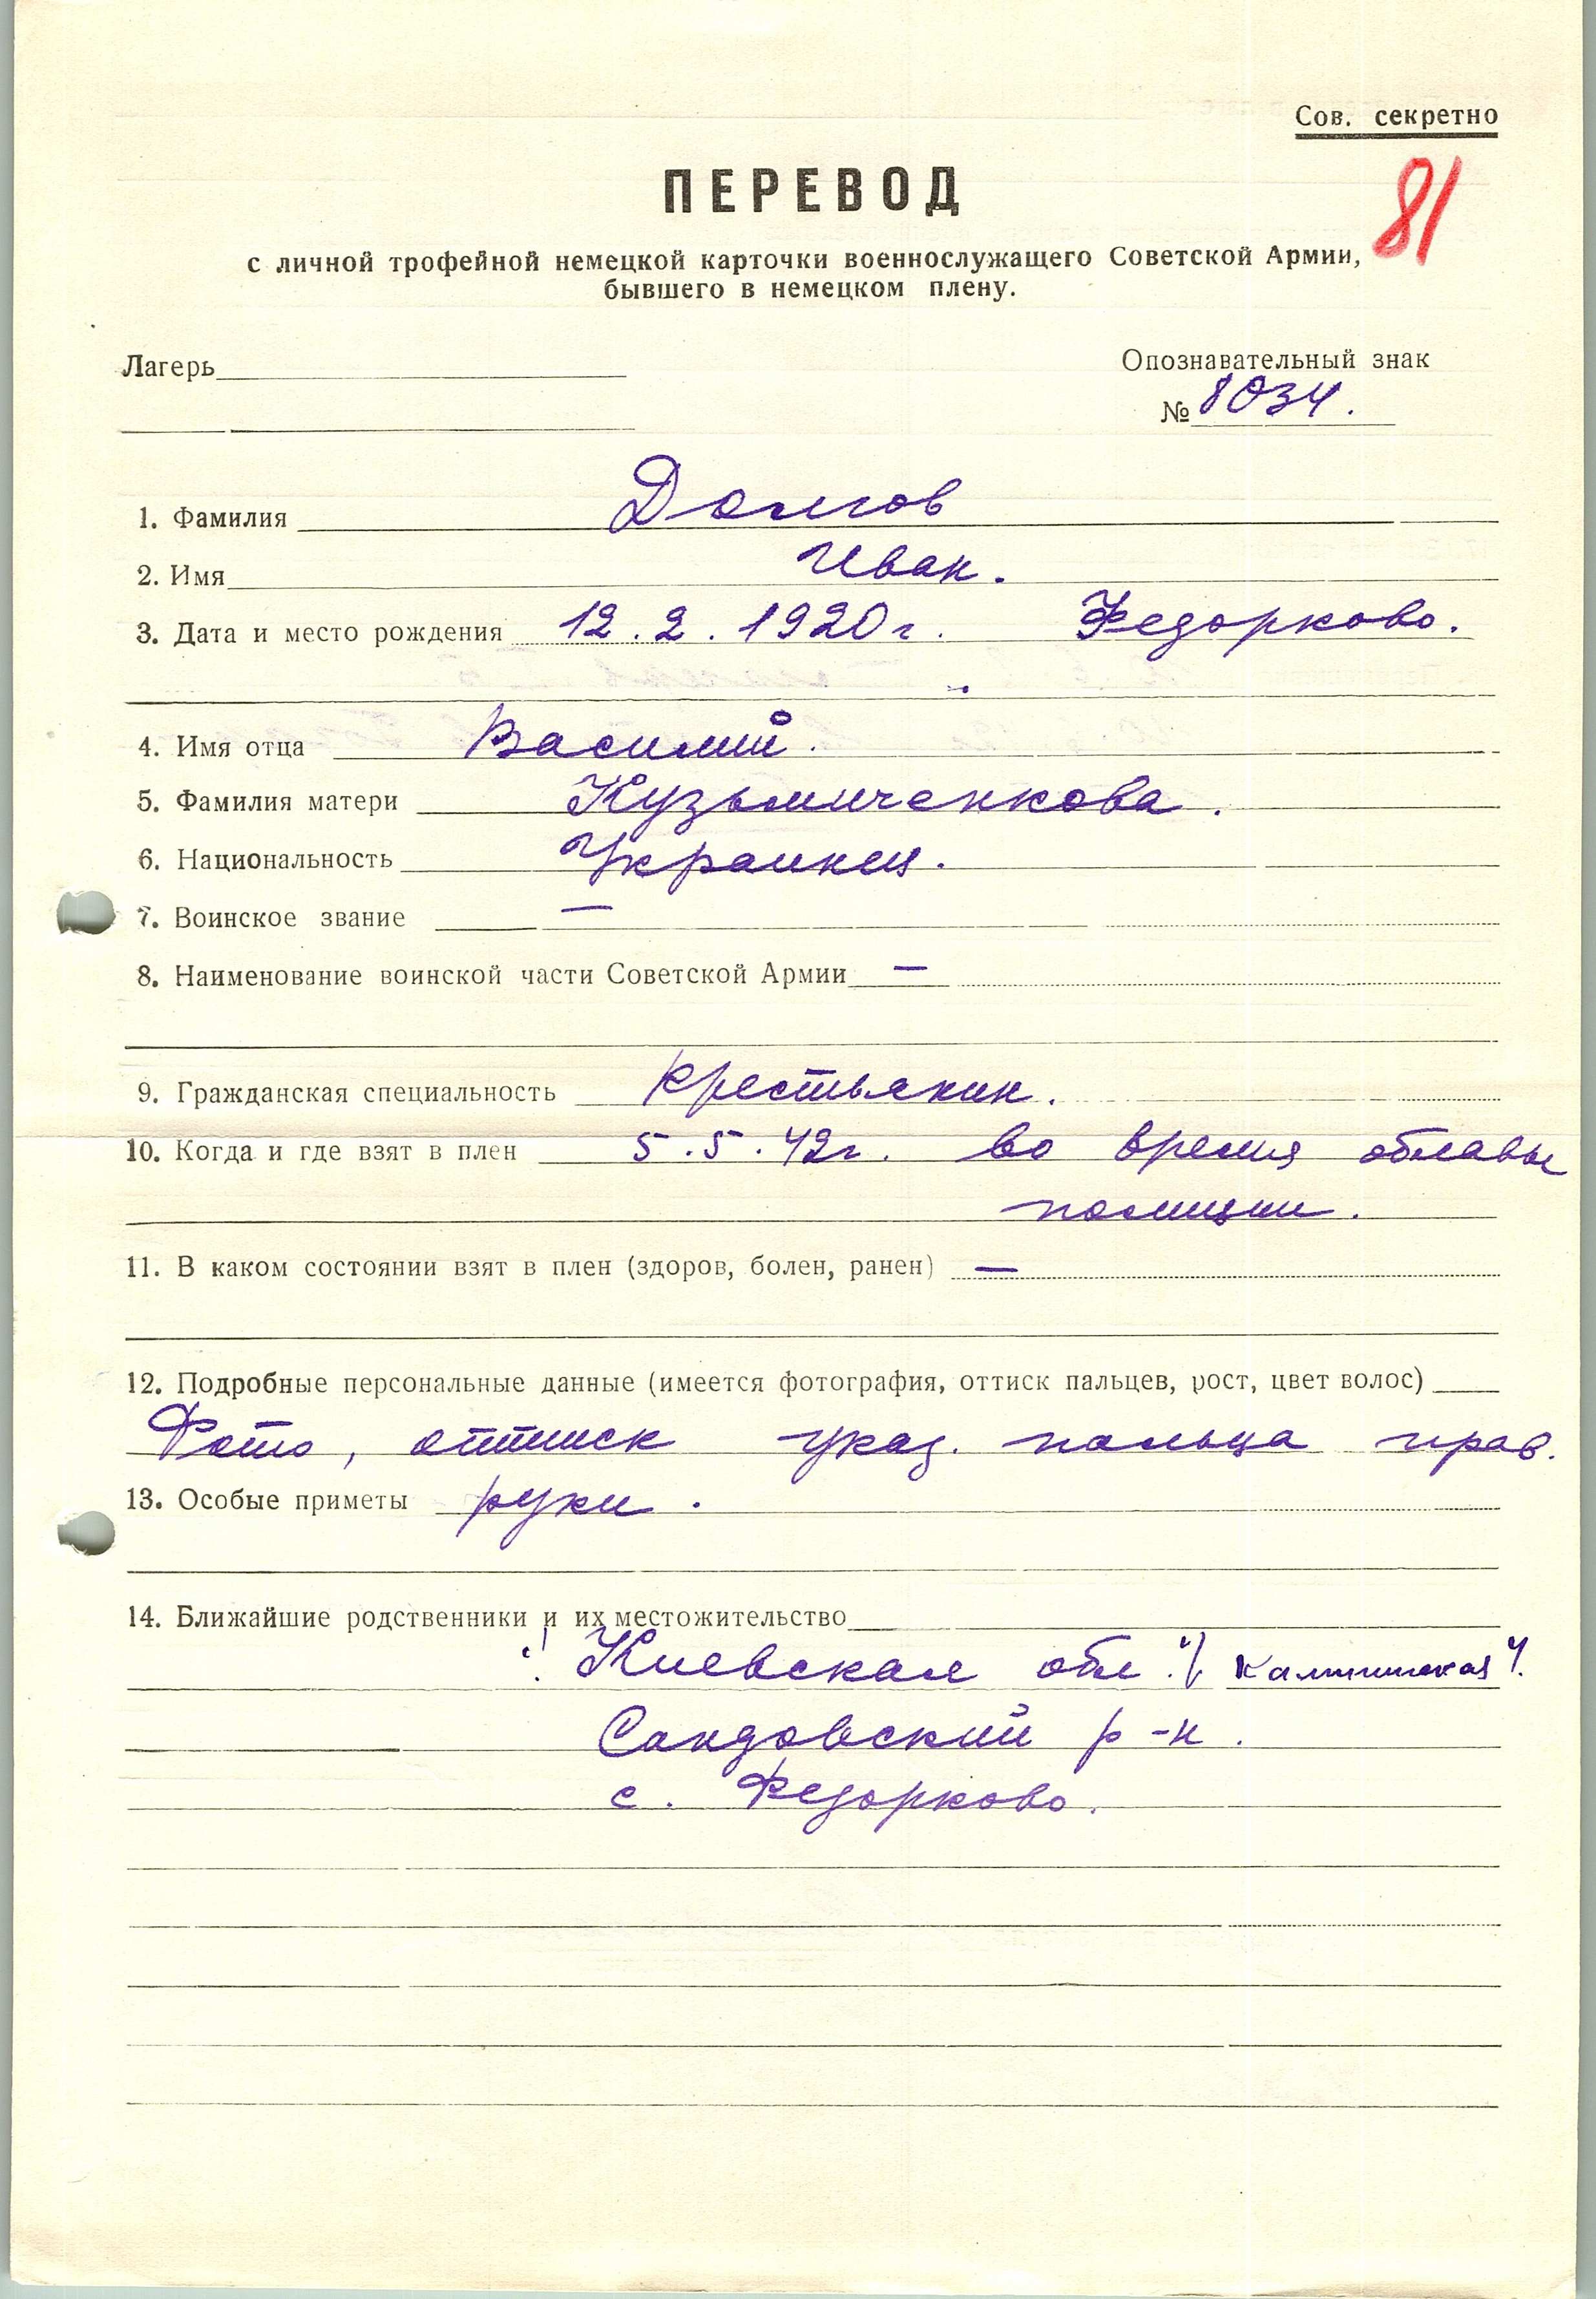 Сов. секретно
ПЕРЕВОД
81
с личной трофейной немецкой карточки военнослужащего Советской Армии,
бывшего в немецком плену.
Лагерь
Опознавательный знак
№ 8034.
1. Фамилия Долгов
2. Имя Иван.
3. Дата и место рождения 12.2.1920г. Федорково.
4. Имя отца Василий.
5. Фамилия матери Кузьмиченкова.
6. Национальность Украинец.
7. Воинское звание —
8. Наименование воинской части Советской Армии —
9. Гражданская специальность крестьянин.
10. Когда и где взят в плен 5.5.42г. во время облавы
полиции.
11. В каком состоянии взят в плен (здоров, болен, ранен) —
12. Подробные персональные данные (имеется фотография, оттиск пальцев, рост, цвет волос)
Фото, оттиск указ. пальца прав.
13. Особые приметы руки.
14. Ближайшие родственники и их местожительство
"Киевская обл." /"Калининская"/.
Сандовский р-н.
с. Федорково.